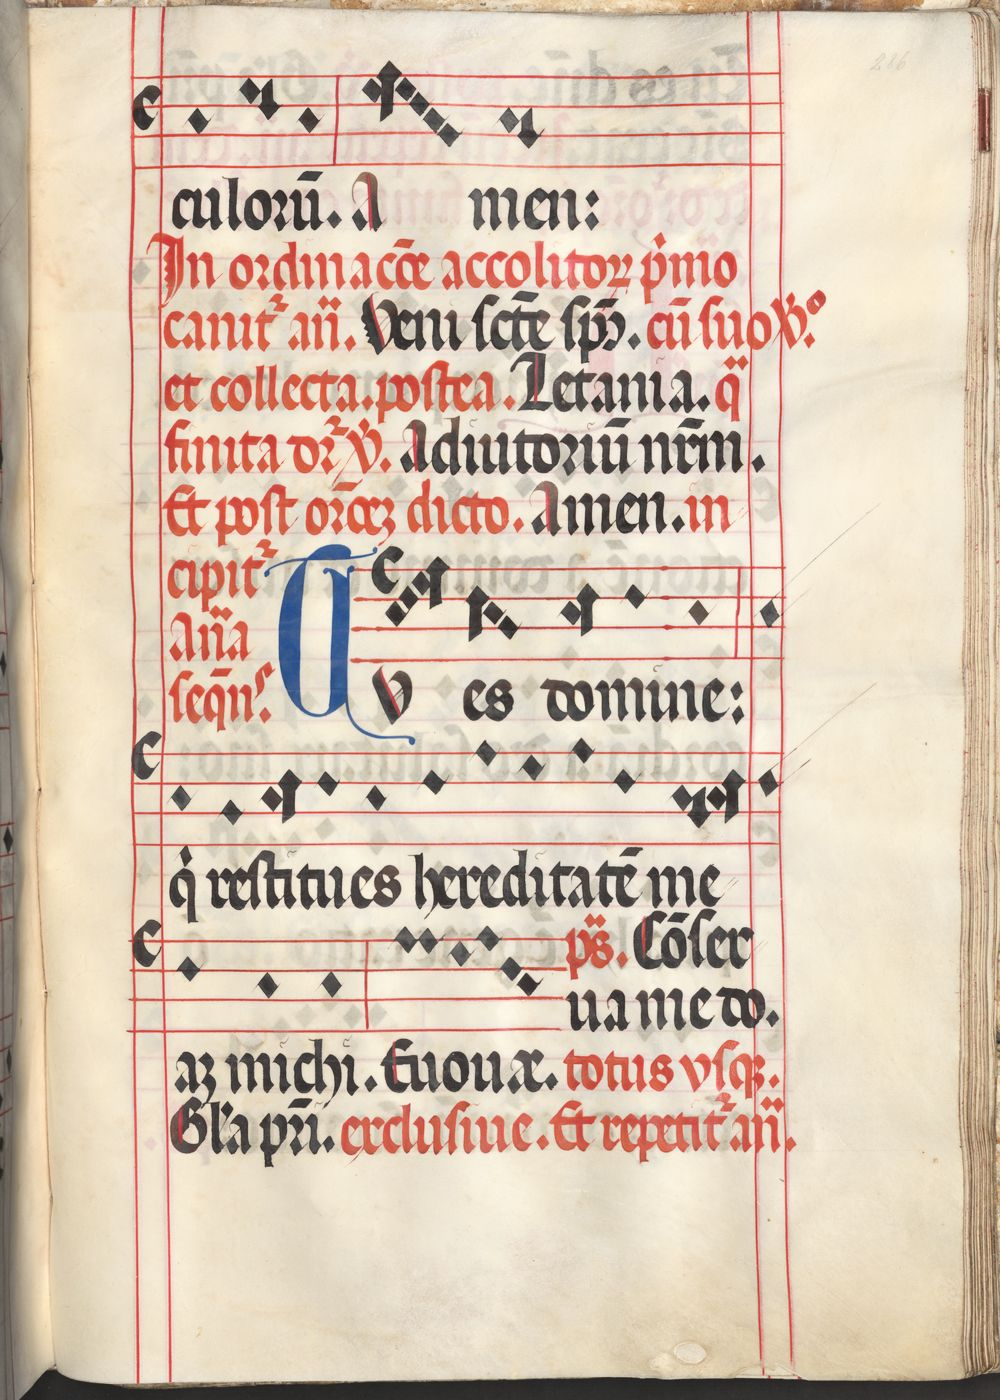 286
culoꝝū. A men:
In ordinacōe accolitoꝝ p̓mo
canit᷑ añ. Veni scte sp̄s. cū suo V̓.º
et collecta. postea. Letania. q̄
finita dr᷑ V̓. Adiutoriū nr̄m.
Et post or̄oeꝫ dicto. Amen. in
cipit᷑
Aña
seqn̄s.
TV es domine:
q̓ restitues hereditatē me
ps̄. Cōser
ua me do.
aꝫ michi. Euouæ. totus vsqꝫ.
Gl'a pr̄i. exclusiue. Et repetit᷑ añ.